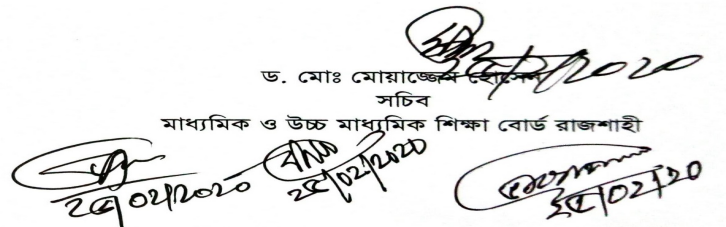 ২৫/০২/২০২০
ড. মোঃ মোয়াজ্জেম হোসেন
সচিব
মাধ্যমিক ও উচ্চ মাধ্যমিক শিক্ষা বোর্ড রাজশাহী
২৫/০২/২০২০ ২৫/০২/২০২০ ২৫/০২/২০